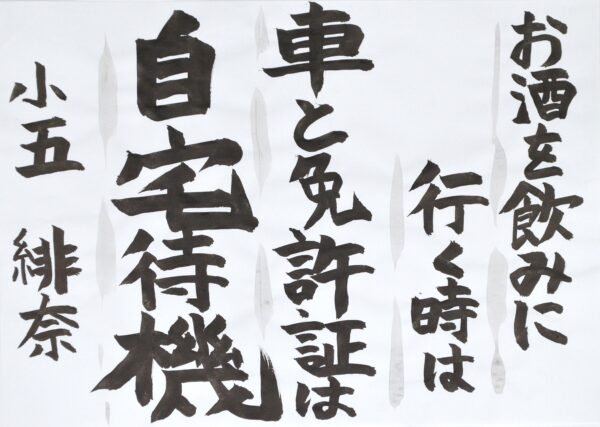 お酒を飲みに
行く時は
車と免許証は
自宅待機
小五 緋奈